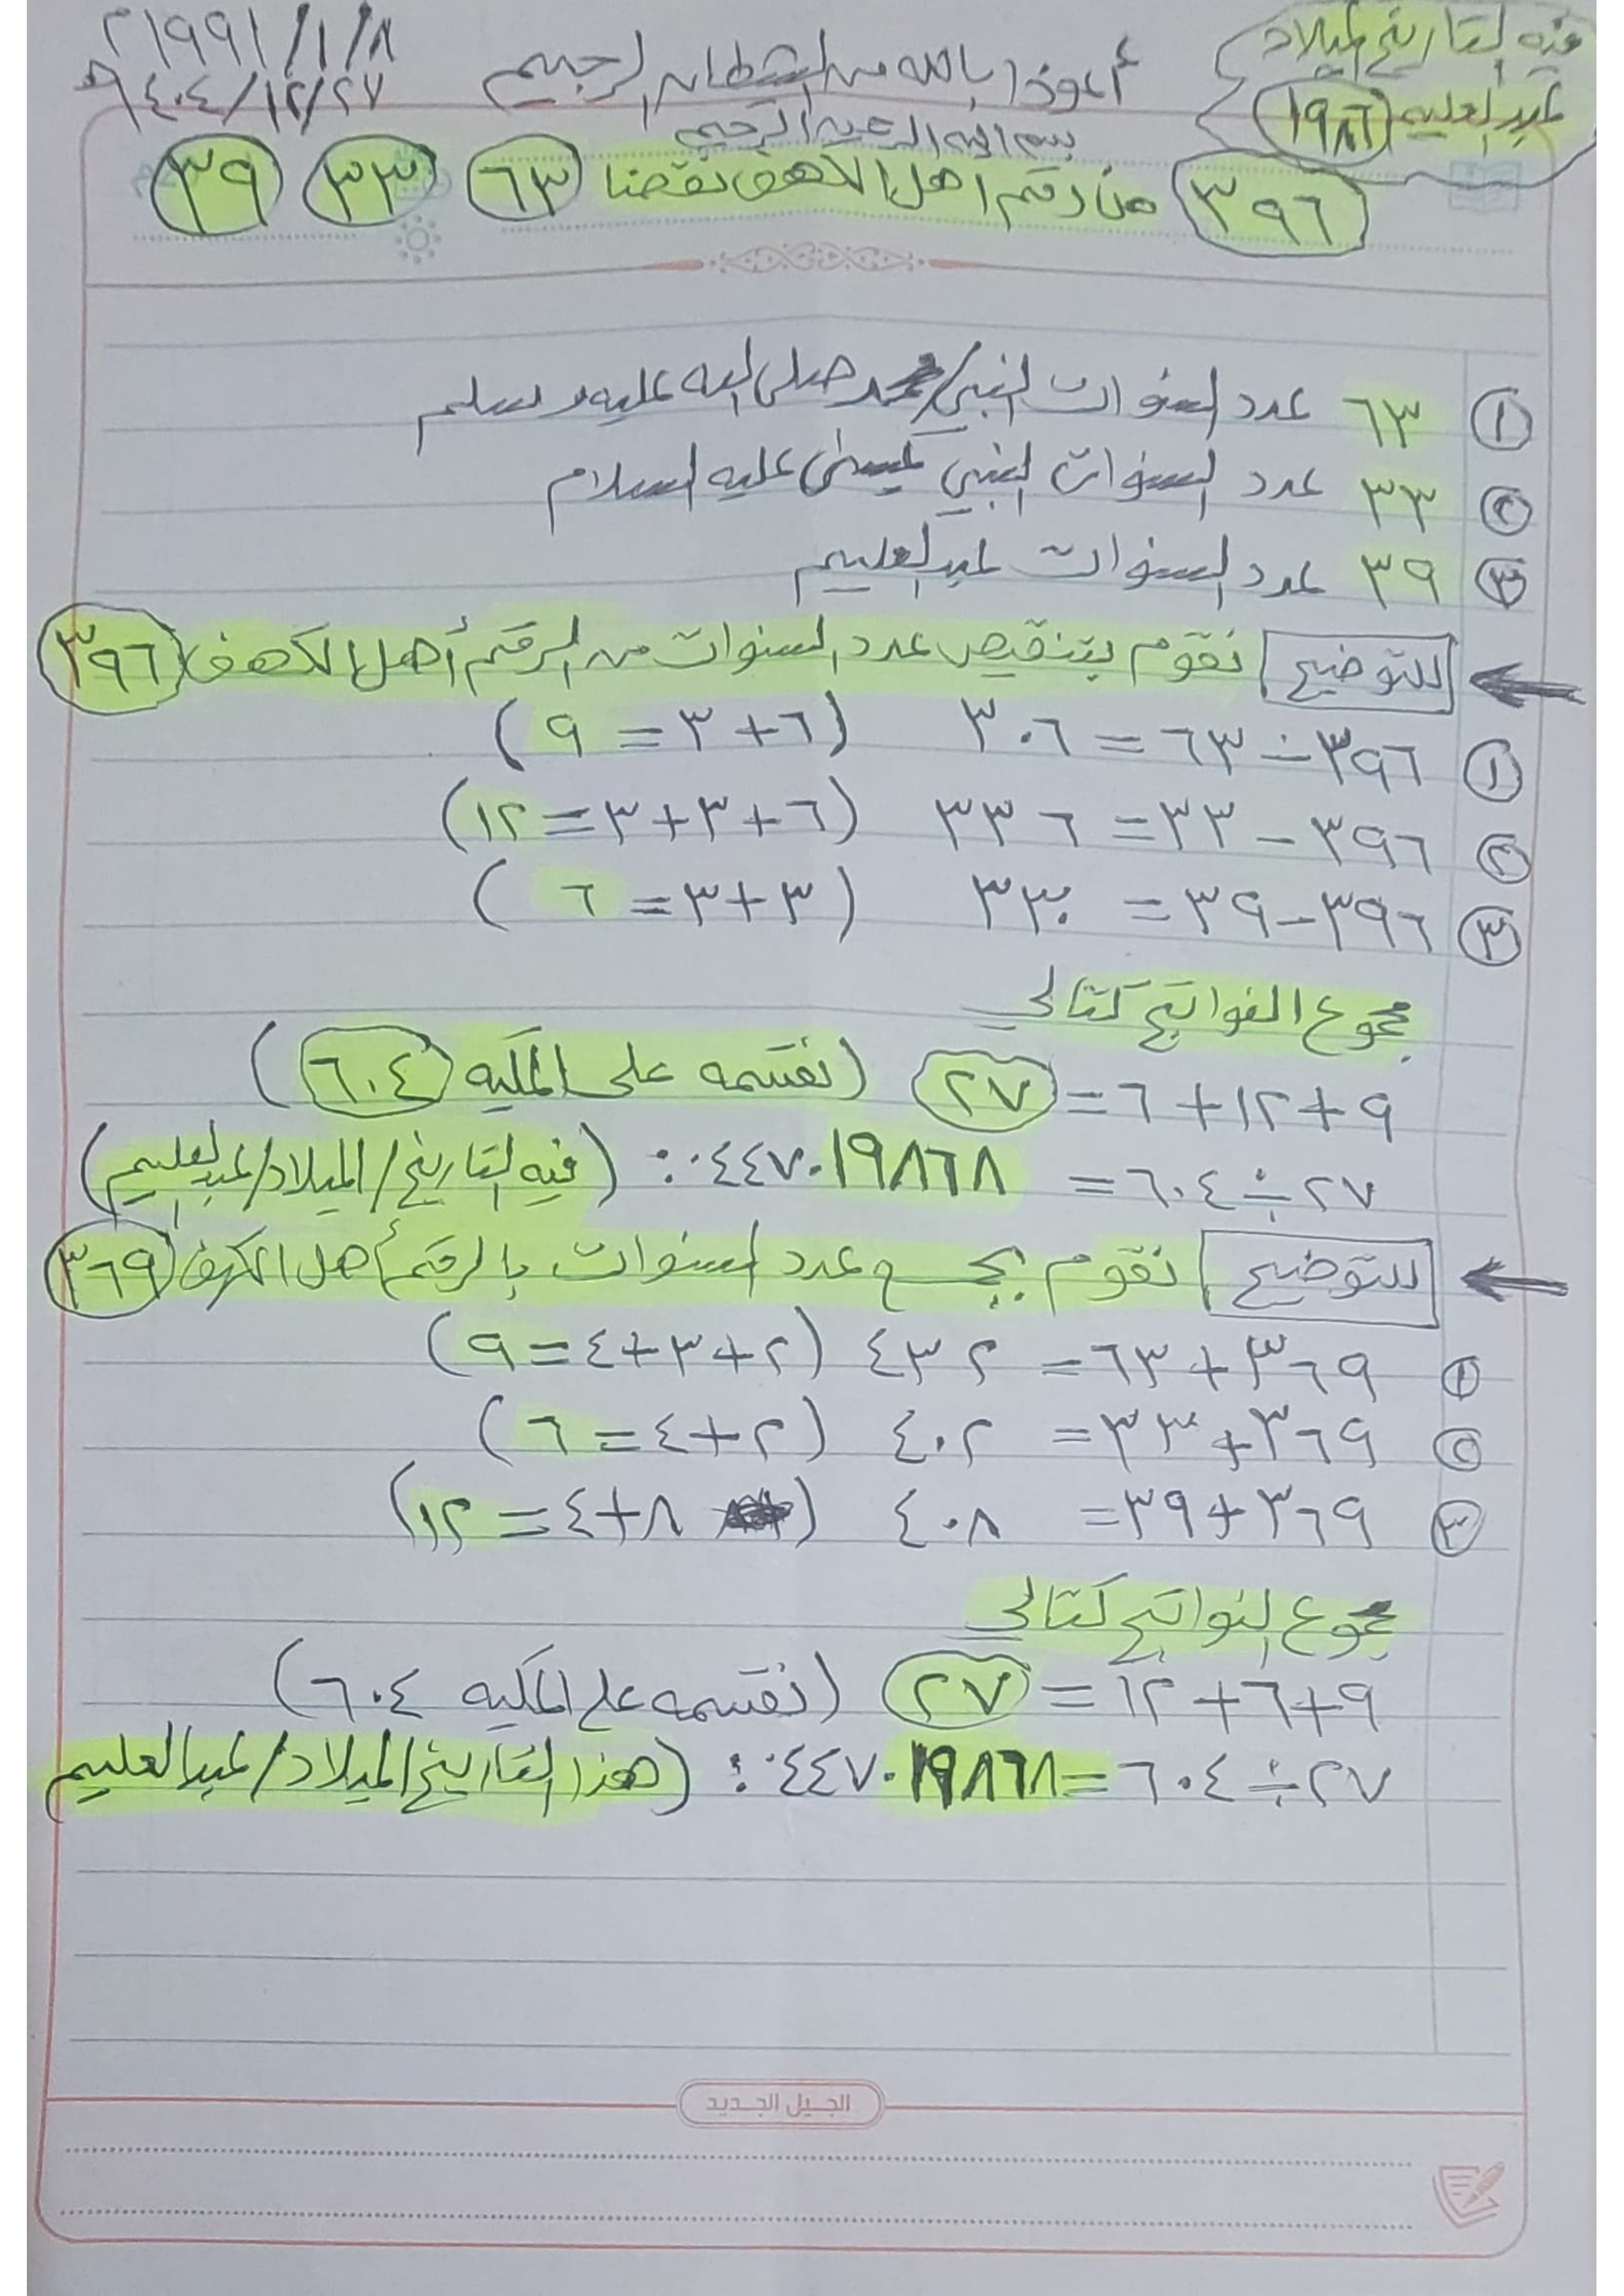 فيه التاريخ الميلاد
عبدالعليم ١٩٨٦
أعوذ بالله من الشيطان الرجيم
٢١٩٩١/١/٨
٦٤٠٤/١٢/٢٧ه
بسم الله الرحمن الرحيم
٣٩٦ من رقم اهل الكهف نقصنا ٦٣ ٣٣ ٣٩
١ ٦٣ عدد السنوات النبي/محمد صلى الله عليه وسلم
٢ ٣٣ عدد السنوات النبي عيسى عليه السلام
٣ ٣٩ عدد السنوات عبدالعليم
للتوضيح نقوم بتنقيص عدد السنوات من الرقم أهل الكهف ٣٩٦
١ ٣٩٦ - ٦٣ = ٣٠٦ (٦+٣=٩)
٢ ٣٩٦ - ٣٣ = ٣٣٦ (٦+٣+٣=١٢)
٣ ٣٩٦-٣٩ = ٣٣٠ (٣+٣=٦)
مجموع النواتج كتالي
٩+١٢+٦= ٢٧ (نقسمه على المكيه ٦٠٤)
٢٧÷٦٠٤= ٠٤٤٧٠١٩٨٦٨: (فيه التاريخ/الميلاد/عبدالعليم)
للتوضيح نقوم بجمع عدد السنوات بالرقم أهل الكهف ٣٦٩
١ ٣٦٩+٦٣= ٤٣٢ (٢+٣+٤=٩)
٢ ٣٦٩+٣٣= ٤٠٢ (٢+٤=٦)
٣ ٣٦٩+٣٩= ٤٠٨ (٨+٤=١٢)
مجموع النواتج كتالي
٩+٦+١٢= ٢٧ (نقسمه على المكيه ٦٠٤)
٢٧÷٦٠٤=٠٤٤٧٠١٩٨٦٨: (هذا التاريخ الميلاد/عبدالعليم
الجيل الجديد